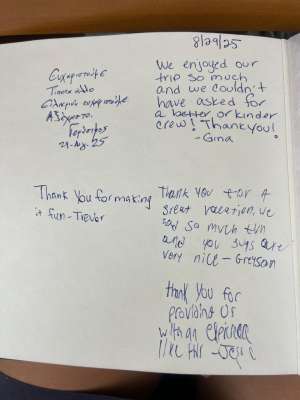 8/29/25
Ευχαριστούμε
Τίποτα άλλο
Ειλικρινά ευχαριστούμε
29-Αυγ. 25
We enjoyed our
trip so much
and we couldn't
have asked for
a better or kinder
crew! Thank you!
-Gina
Thank You for making
it fun-Trevor
Thank you for a
great vacation, we
had so much fun
and you guys are
very nice - Greyson
thank you for
providing us
with an experience
like this -